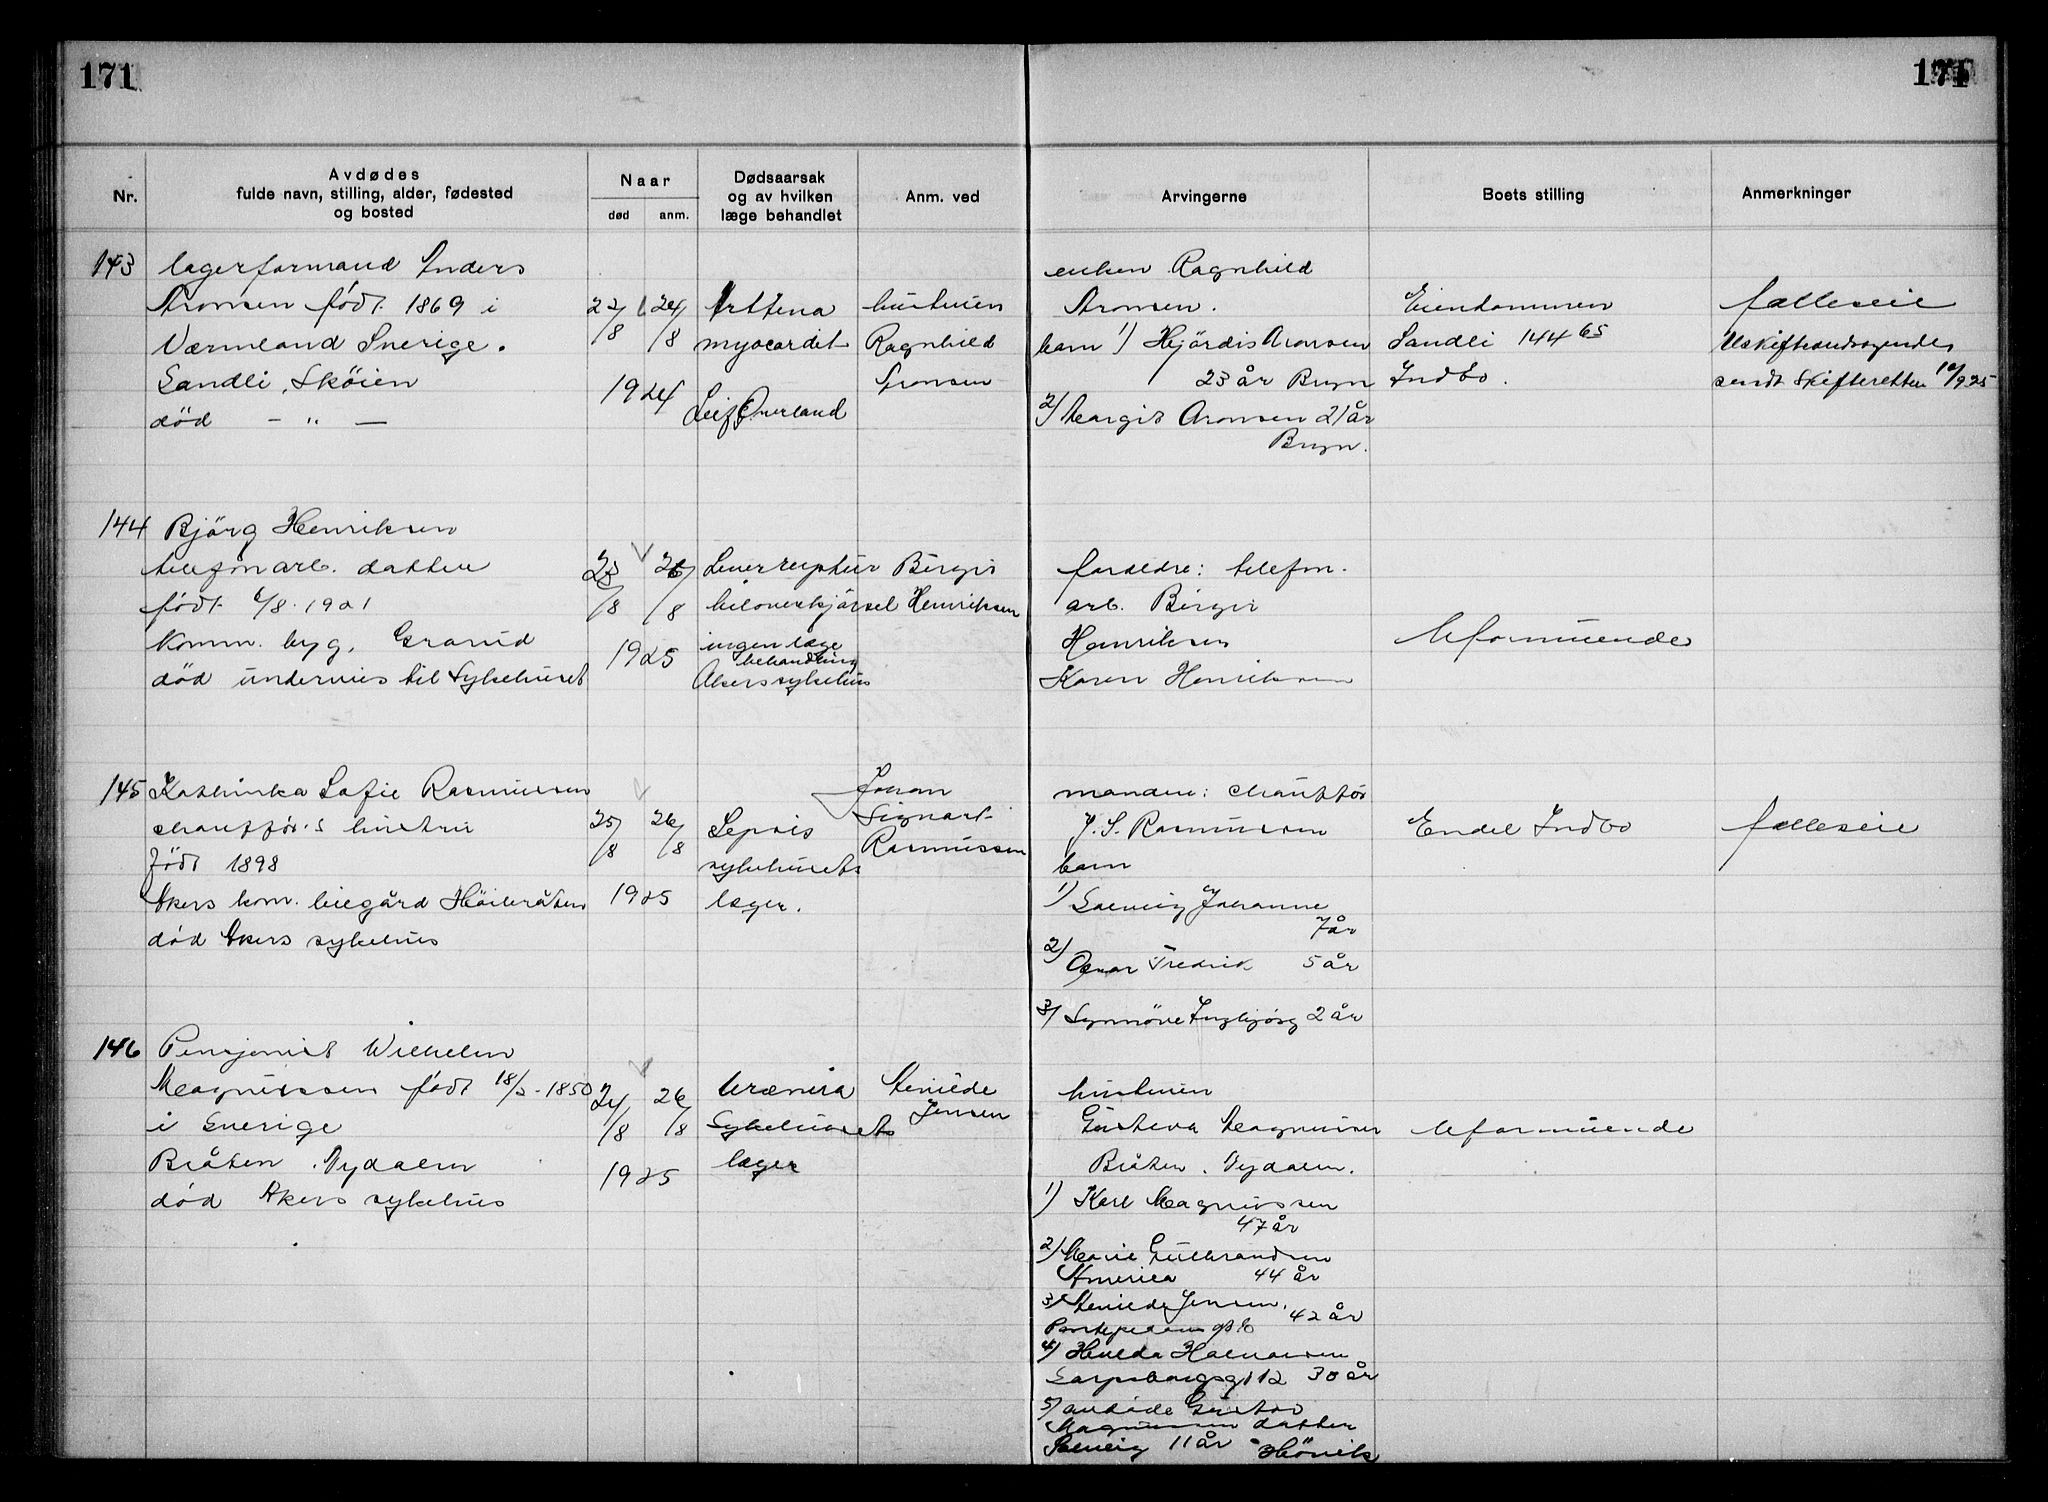 171
171
Nr.
Avdødes
fulde navn, stilling, alder, fødested
og bosted
Naar
død
anm.
Dødsaarsak
og av hvilken
læge behandlet
Anm. ved
Arvingerne
Boets stilling
Anmerkninger
143
lagerformand Anders
Aronsen født 1869 i
Værmland Sverige.
Sandli, Skøien
død - " -
22/8 24/8
1924
myocardit
Leif Øverland
hustruen
Ragnhild
Aronsen
enken Ragnhild
Aronsen.
barn 1) Hjørdis Aronsen
23 år Bryn
2) Margit Aronsen 21 år
Bryn.
Eiendommen
Sandli 144 65
Indbo.
fælleseie
sendt Skifteretten 10/9 25
144
Bjørg Henriksen
telefonarb. datter
født 6/8 1921
Komm. byg. Grorud
død underveis til Sykehuset
23/8 26/8
1925
Leverruptur
biloverkjørsel
ingen læge
behandling
Akers sykehus
Birger
Henriksen
foreldre: telefon.
arb. Birger
Henriksen
Karen Henriksen
Uformuende
145
Kathinka Sofie Rasmussen
chauffør.s hustru
født 1898
Akers kom. leiegård Høibråten
død Akers sykehus
25/8 26/8
1925
Sepsis
sykehusets
læger.
Johan
Sigvart
Rasmussen
manden: chauffør
J. S. Rasmussen
barn
1) Solveig Johanne
7 år
2) Fredrik 5 år
3) Synnøve Ingbjørg 2 år
Endel Indbo
fælleseie
146
Pensjonist Wilhelm
Magnussen født 18/3-1850
i Sverige
Bråten. Nydalen
død Akers sykehus
24/8 26/8
1925
Uræmia
Sykehusets
læger
Jensen
hustruen
Gustava Magnussen
Bråten. Nydalen.
1) Karl Magnussen
47 år
2) Marie Gulbrandsen
Amerika 44 år
3) Jensen.
42 år
4) Hulda Halvorsen
Sarpsborggt 12 30 år
5) avdøde Gustav
Magnussen datter
Solveig 11 år Høvik
Uformuende